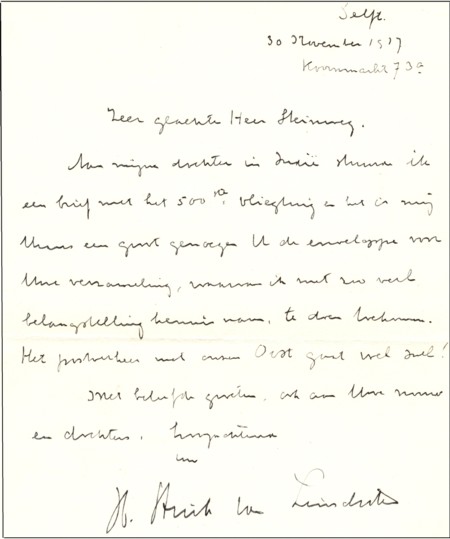 Delft.
30 November 1937
Koornmarkt 73a
Zeer geachte Heer Steinweg.
Aan mijne dochter in Indië stuurde ik
een brief met het 500ste vliegtuig en het is mij
thans een groot genoegen U de enveloppe voor
Uwe verzameling, waarvan ik met zoo veel
belangstelling kennis nam, te doen toekomen.
Het postverkeer met onzen Oost gaat wel snel!
Met beleefde groeten, ook aan Uwe vrouw
en dochters. hoogachtend
H. van